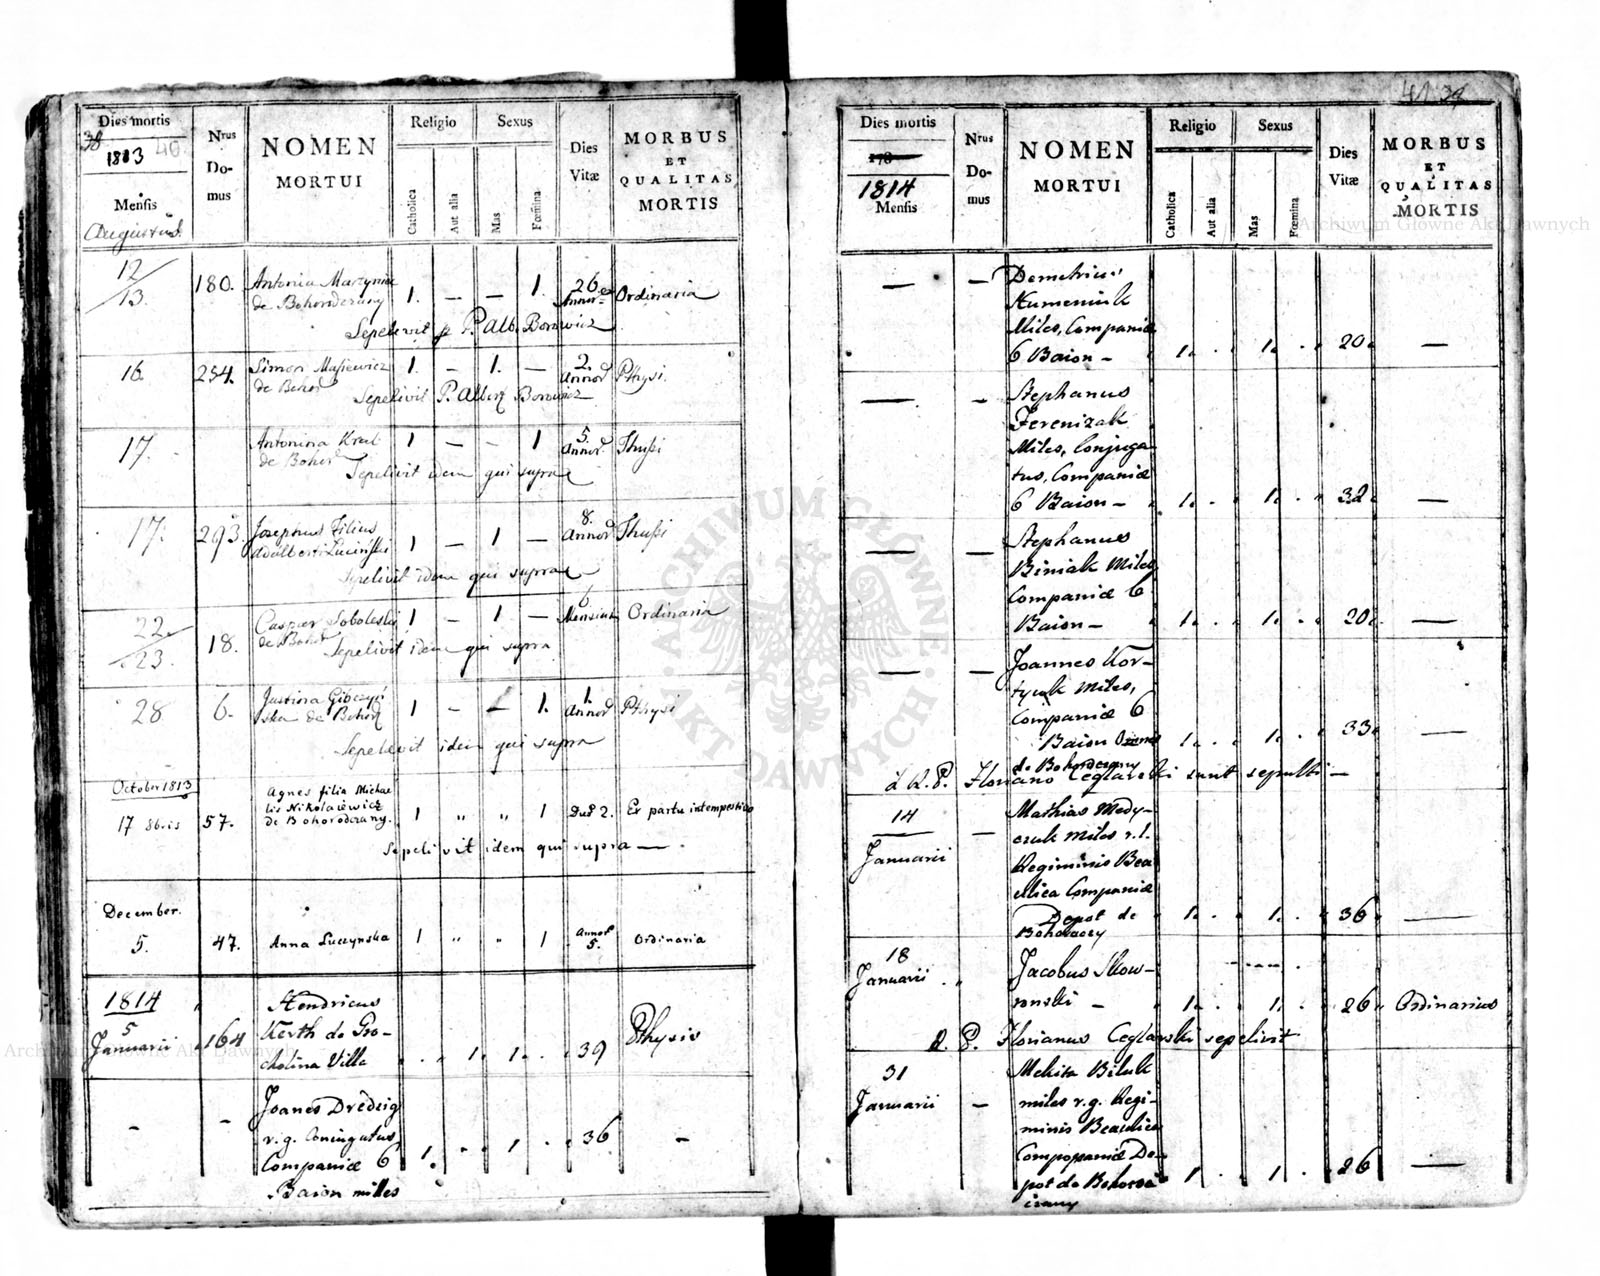 Dies mortis
38
40
1813
Mensis
Augustus
Nrus
Do-
mus
NOMEN
MORTUI
Religio
Catholica
Aut alia
Sexus
Mas
Fœmina
Dies
Vitæ
MORBUS
ET
QUALITAS
MORTIS
12/13. 180. Antonia
de Bohorodczany 1. — — 1. 26 Annor Ordinaria
Sepelivit P. Alb. Borowicz
16. 254. Simon Masiewicz
de Bohor 1. — 1. — 2. Annor Phtysi.
Sepelivit P. Albert Borowicz
17. Antonina Kral
de Bohor 1 — — 1 5. Annor Thussi
Sepelivit idem qui supra
17. 293. Josephus Filius
Adalberti Luciński 1 — 1 — 8. Annor Thussi
Sepelivit idem qui supra
22./23. 18. Casper Soboleski
de Bohor 1 — 1 — 6 Mensium Ordinaria
Sepelivit idem qui supra
28 6. Justina
ska de Bohor 1 — — 1. 1. Annor Phtysi
Sepelivit idem qui supra
October 1813
17 8b.is 57. Agnes filia Michae
lis Nikolaiewicz
de Bohorodczany. 1 " " 1 2. Ex partu intempestivo
Sepelivit idem qui supra —
December.
5. 47. Anna Luczynska 1 " " 1 Annor 5. Ordinaria
1814
5
Januarii 164 Hendricus
Kerth de Gro-
cholina Villa . . 1. 1. . 39 Phtysis
- - Joanes Dredzig
r. g. Coniugatus
Companiæ 6
Baion milles 1. . . 1 . . 36 -
41. 39
Dies mortis
178
1814
Mensis
Nrus
Do-
mus
NOMEN
MORTUI
Religio
Catholica
Aut alia
Sexus
Mas
Fœmina
Dies
Vitæ
MORBUS
ET
QUALITAS
MORTIS
— — Demetrius
Humeniuk
Miles, Companiæ
6 Baion — 1. . 1. . 20. —
— — Stephanus
Ferenizak
Miles, Conjuga-
tus, Companiæ
6 Baion — 1. . 1. . 32. —
— — Stephanus
Biniak Miles
Companiæ 6
Baion — 1. . 1. . 20. —
— — Joannes Kor-
tycuk Miles,
Companiæ 6
Baion 1. . 1. . 33. —
de Bohordczany
Floriano Ceglarski sunt sepulti —
14
Januarii — Mathias Medy-
czuk Miles r. l.
Regiminis Beau
llica Companiæ
Depot de
1. . 1. . 36 —
18
Januarii . . Jacobus Skow-
ronski — 1. . 1. . 26 Ordinarius
P. Florianus Ceglarski sepelivit
31
Januarii — Mekita Biluk
miles r. g. Regi-
minis Beaulieu
Compopaniæ De-
pot de Bohorod
czany 1 . 1 . 26 —
ARCHIWUM GŁÓWNE AKT DAWNYCH
Archiwum Główne Akt Dawnych
Archiwum Główne Akt Dawnych